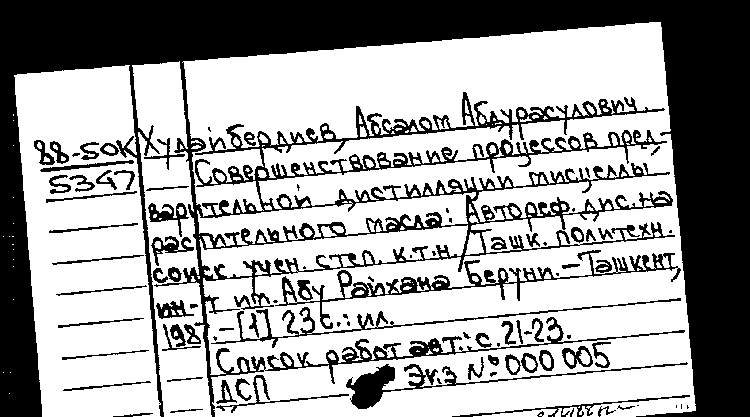 88-50К Худайбердиев, Абсалом Абдурасулович.
5347 Совершенствование процессов пред-
варительной дистилляции мисцеллы
растительного масла: Автореф. дис. на
соиск. учен. степ. к.т.н. / Ташк. политехн.
ин-т им. Абу Райхана Беруни. – Ташкент,
1987. – [1], 23 с.: ил.
Список работ авт.: с. 21-23.
ДСП Экз № 000 005